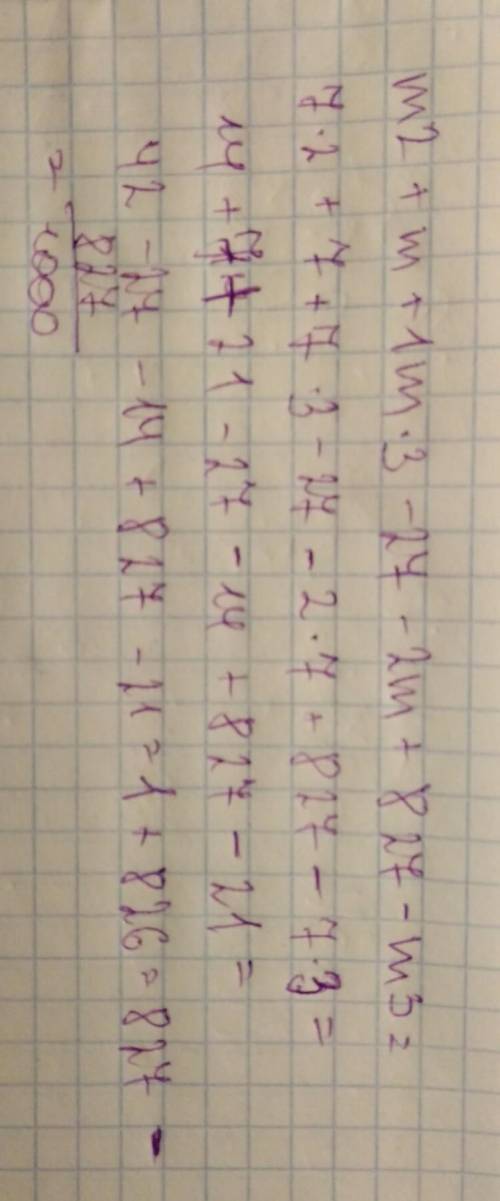 m2 + m + 1m·3 - 27 - 2m + 827 - m3 =
7·2 + 7 + 7·3 - 27 - 2·7 + 827 - 7·3 =
14 + 7 + 21 - 27 - 14 + 827 - 21 =
42 - 27 - 14 + 827 - 21 = 1 + 826 = 827 -
827
= 1000